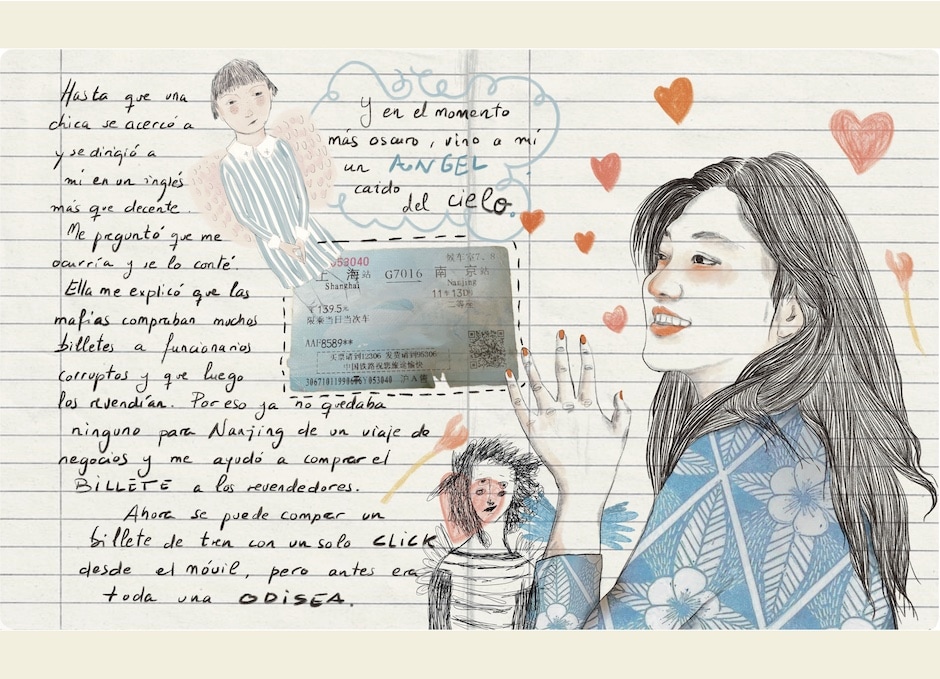 Hasta que una
chica se acercó a
y se dirigió a
mí en un inglés
más que decente.
Me preguntó que me
ocurría y se lo conté.
Ella me explicó que las
mafias compraban muchos
billetes a funcionarios
corruptos y que luego
los revendían. Por eso ya no quedaba
ninguno para Nanjing de un viaje de
negocios y me ayudó a comprar el
BILLETE a los revendedores.
Ahora se puede comprar un
billete de tren con un solo CLICK
desde el móvil, pero antes era
toda una ODISEA.
Y en el momento
más oscuro, vino a mí
un ANGEL
caido
del cielo.
053040
上海站 G7016 南京站
Shanghai Nanjing
11车13D号
¥139.5 二等座
限乘当日当次车
AAF8589**
买票请到12306 发货请到95306
中国铁路祝您旅途愉快